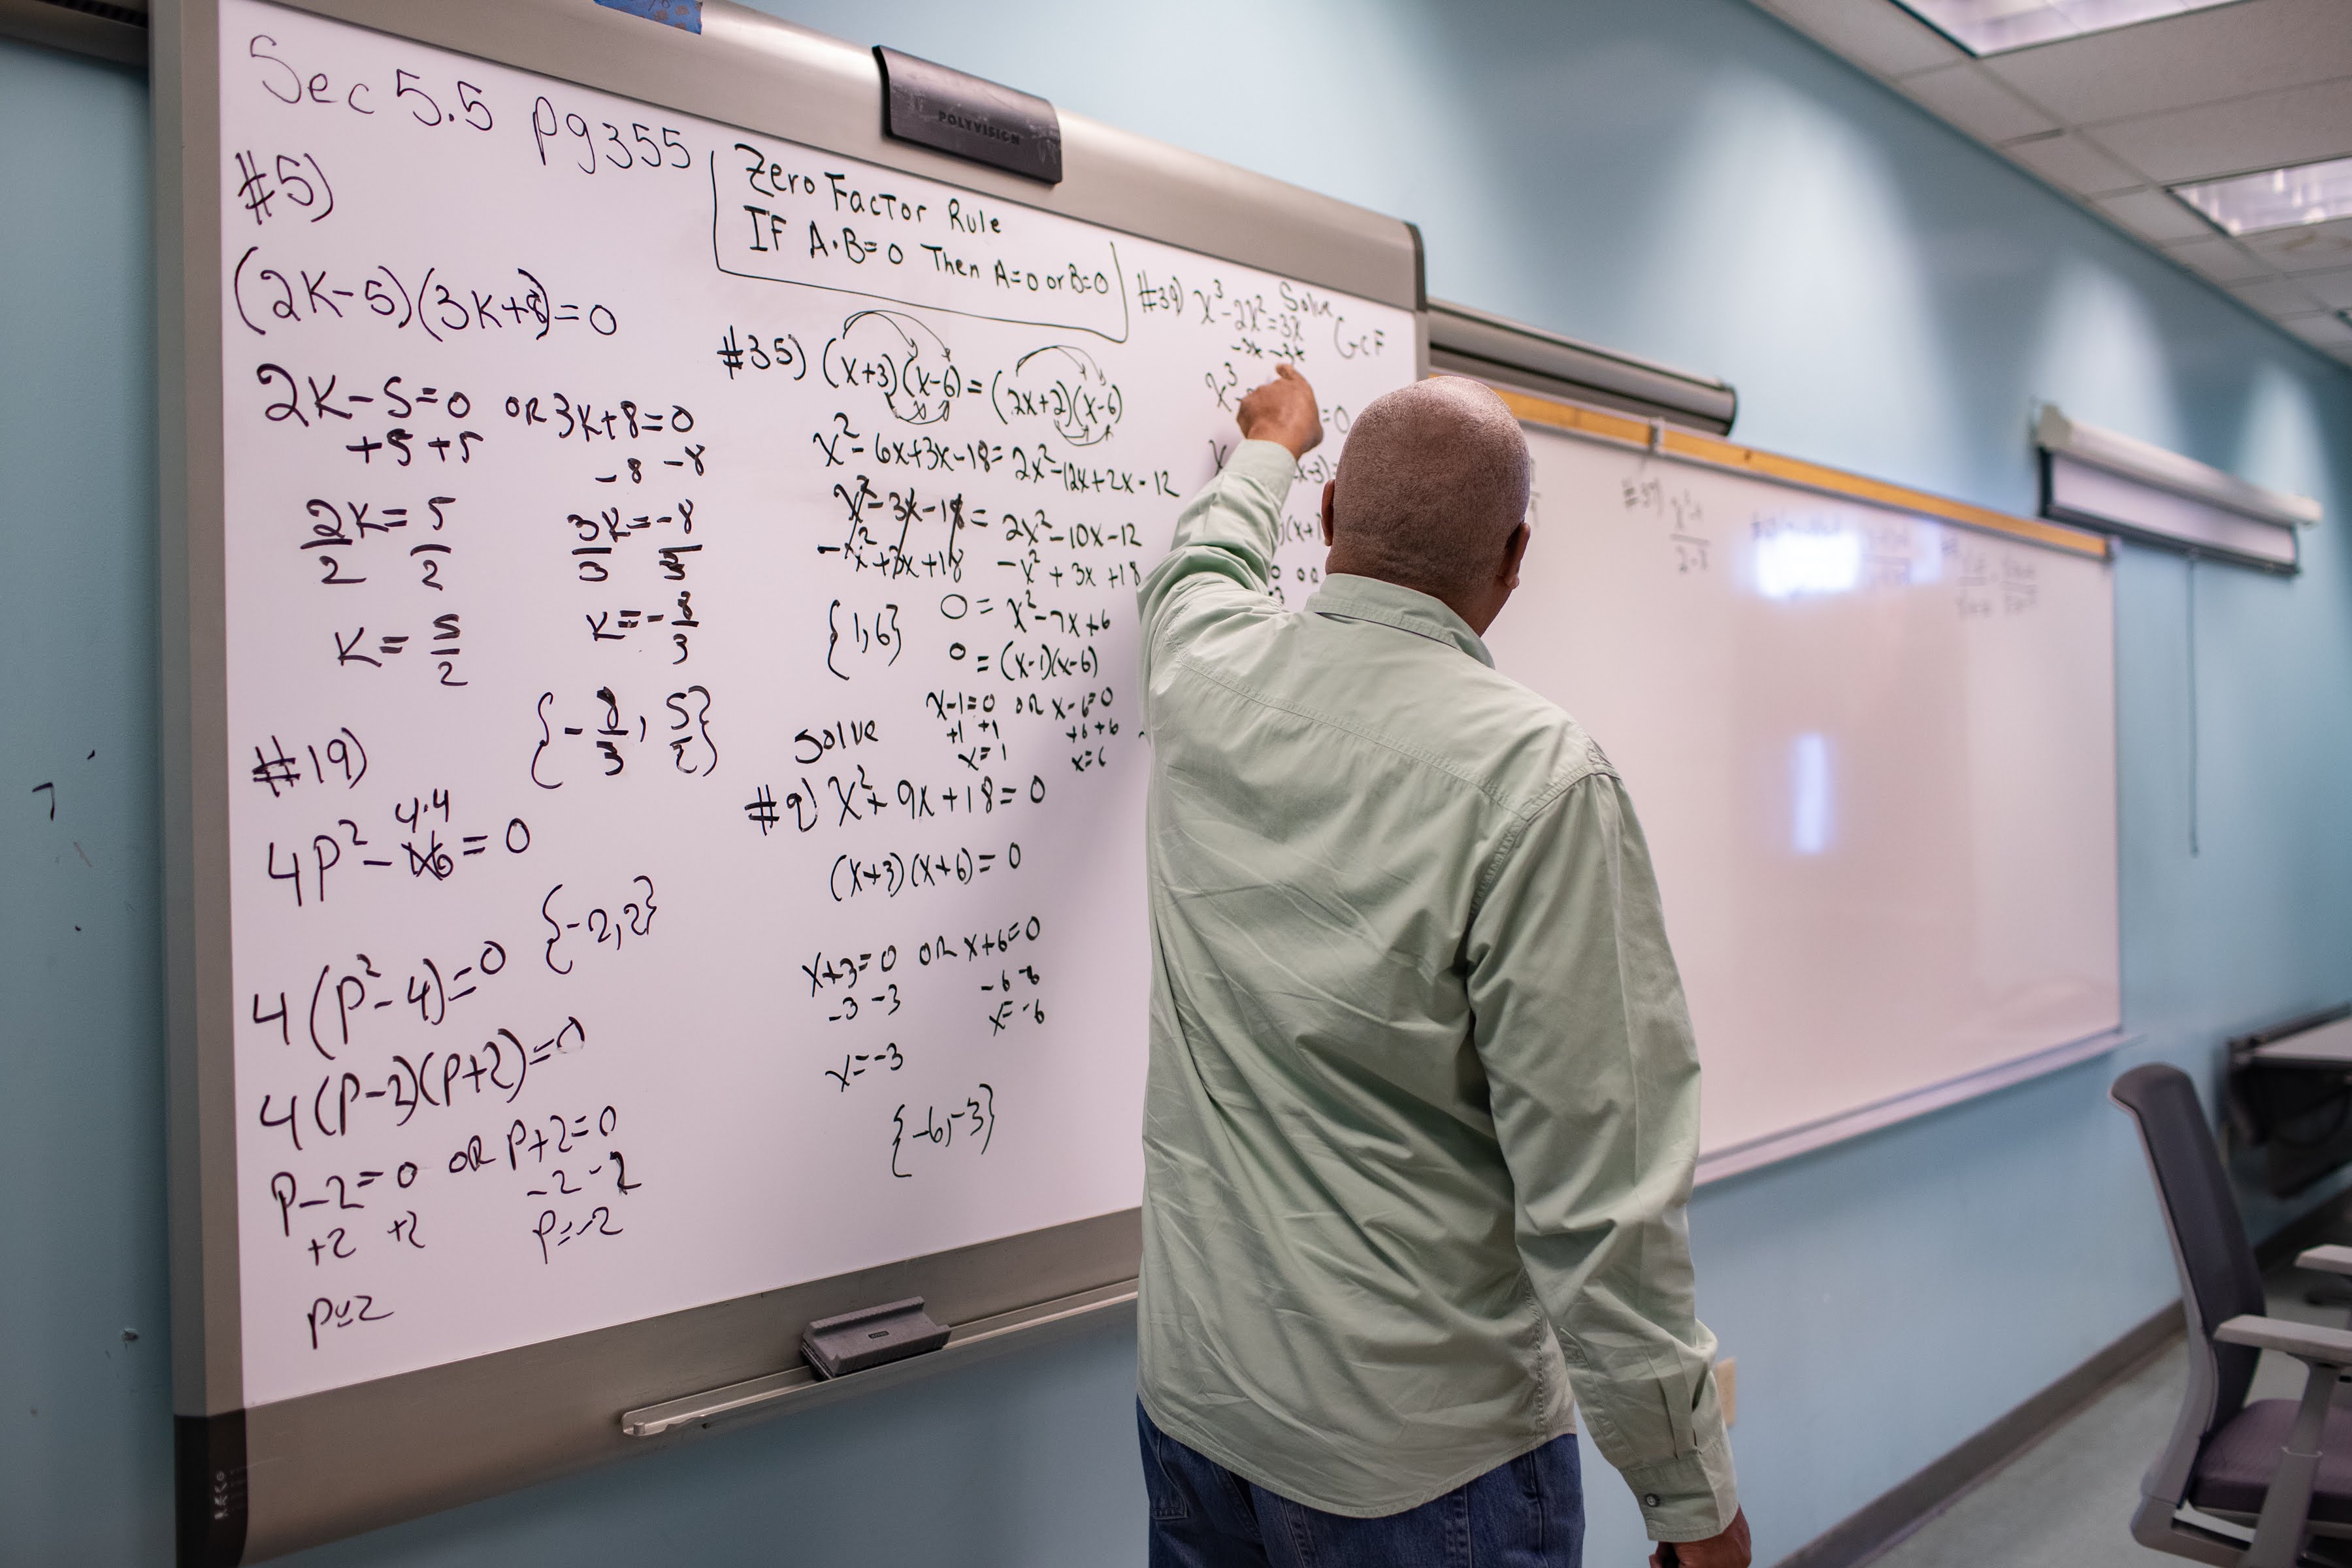 Sec 5.5 pg355
#5)
(2K-5)(3K+8)=0
2K-5=0 OR 3K+8=0
+5 +5
-8 -8
2K=5
2 2
3K=-8
3 3
K=5/2
K=-8/3
{-8/3, 5/2}
#19)
4·4
4P²-16=0
{-2,2}
4(P²-4)=0
4(P-2)(P+2)=0
P-2=0 OR P+2=0
+2 +2
-2 -2
P=2
P=-2
POLYVISION
Zero Factor Rule
IF A·B=0 Then A=0 or B=0
#35) (x+3)(x-6)=(2x+2)(x-6)
x²-6x+3x-18=2x²-12x+2x-12
x²-3x-18=2x²-10x-12
-x²+3x+18 -x²+3x+18
{1,6}
0=x²-7x+6
0=(x-1)(x-6)
x-1=0 OR x-6=0
+1 +1
+6 +6
x=1
x=6
Solve
#9) x²+9x+18=0
(x+3)(x+6)=0
x+3=0 OR x+6=0
-3 -3
-6 -6
x=-3
x=-6
{-6,-3}
Solve
#39) x³-2x²=3x
GCF
-3x -3x
x³
=0